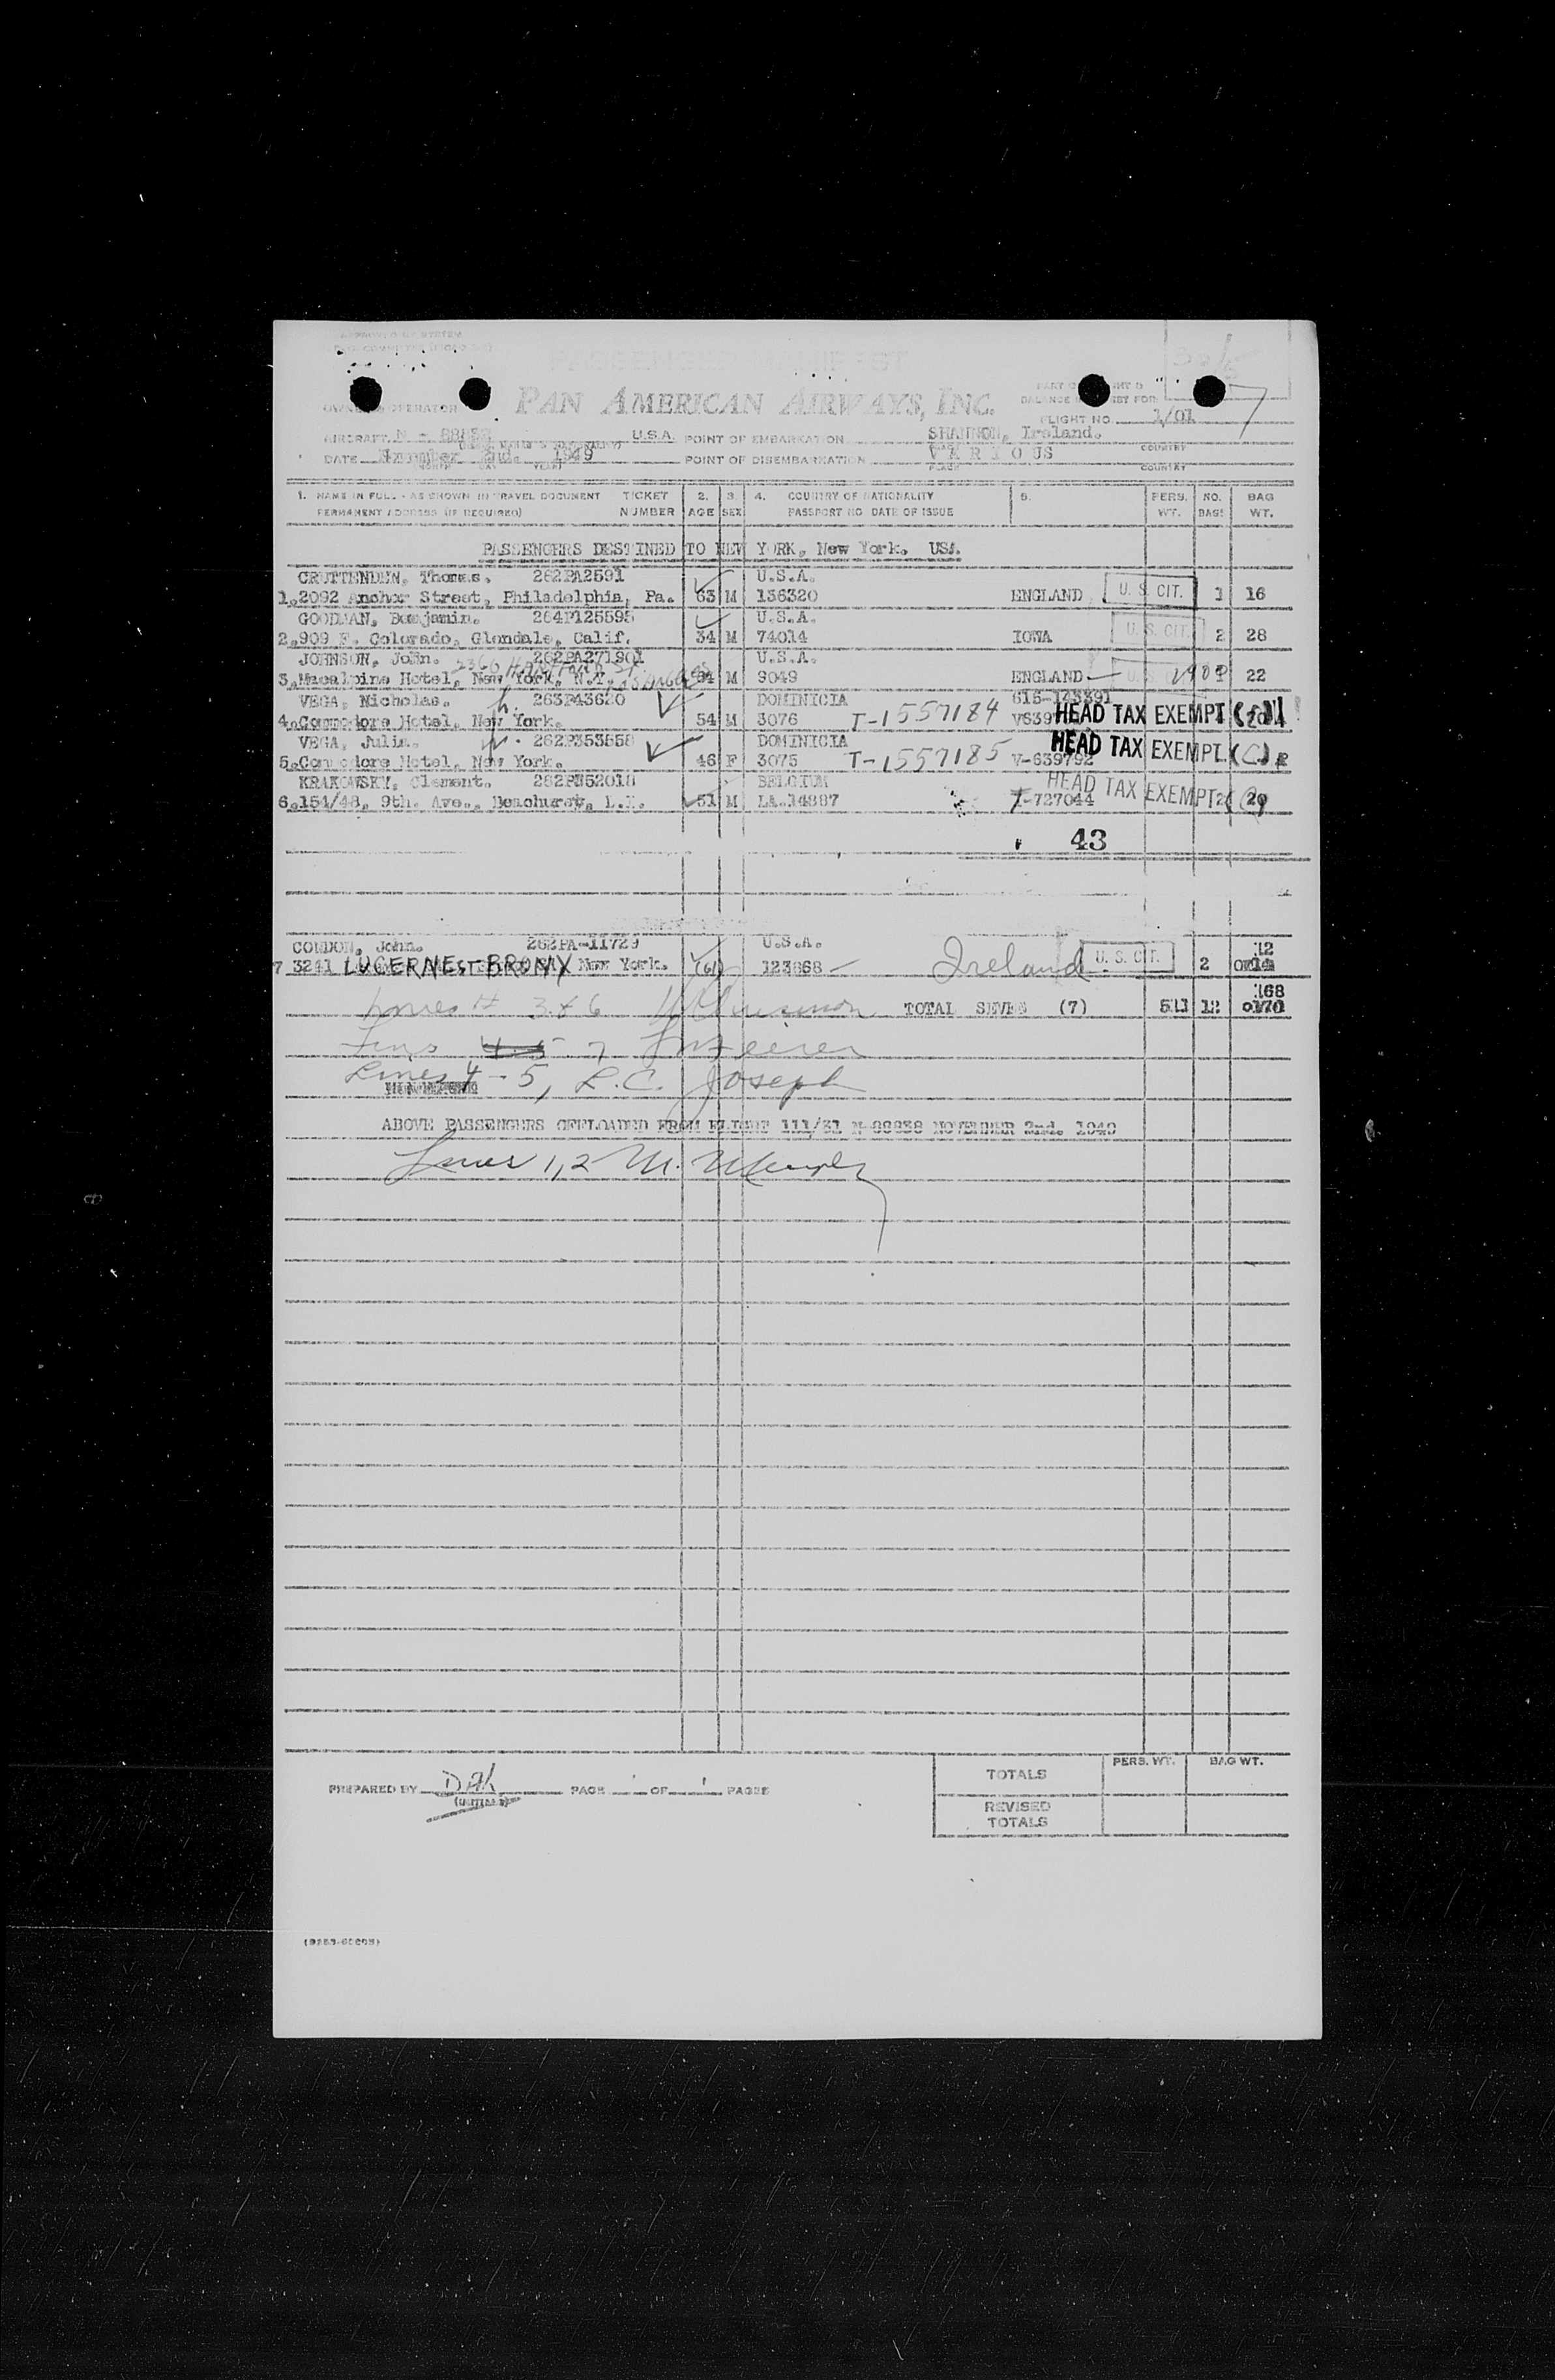 PASSENGER MANIFEST
PAN AMERICAN AIRWAYS, INC.
OWNER OPERATOR
FLIGHT NO. 1/01
AIRCRAFT N - U.S.A. POINT OF EMBARKATION SHANNON, Ireland.
DATE November 2nd. 1949 POINT OF DISEMBARKATION V A R I O U S
MONTH DAY YEAR PLACE COUNTRY
1. NAME IN FULL - AS SHOWN IN TRAVEL DOCUMENT TICKET 2. 3. 4. COUNTRY OF NATIONALITY 5. PERS. NO. BAG
PERMANENT ADDRESS (IF REQUIRED) NUMBER AGE SEX PASSPORT NO. DATE OF ISSUE WT. BAGS WT.
PASSENGERS DESTINED TO NEW YORK, New York. USA.
CRUTTENDEN, Thomas. 262PA2591 U.S.A.
1.2092 Anchor Street, Philadelphia, Pa. 63 M 136320 ENGLAND U. S. CIT. 1 16
GOODMAN, Benjamin. 264P125595 U.S.A.
2.909 E. Colorado, Glendale, Calif. 34 M 74014 IOWA U. S. CIT. 2 28
JOHNSON, John. 262PA271901 U.S.A.
3.Macalpine Hotel, New York, N.Y. M 9049 ENGLAND 22
VEGA, Nicholas. 263P43620 DOMINICIA 615-143391
4.Commodore Hotel, New York. 54 M 3076 T-1557184 HEAD TAX EXEMPT
VEGA, Julia. 262P353558 DOMINICIA
5.Commodore Hotel, New York. 46 F 3075 T-1557185 V-639792 HEAD TAX EXEMPT (C)
KRAKOWSKY, Clement. BELGIUM HEAD TAX EXEMPT
6.154/48, 9th. Ave., Beachurst, L.I. 51 M LA.14887 T-727044 2 20
43
CONDON, John. 262PA-11729 U.S.A. 12
7 3241 LUCERNE ST BRONX New York. (61) 123868 Ireland U. S. CIT. 2
168
Lines # 3 & 6 TOTAL SEVEN (7) 511 12
Lines 4-5, L.C. Joseph
ABOVE PASSENGERS OFFLOADED FROM FLIGHT 111/31 N-88838 NOVEMBER 2nd. 1949
Lines 1,2 M.
PREPARED BY DAK PAGE 1 OF 1 PAGES
(INITIALS)
PERS. WT. BAG WT.
TOTALS
REVISED
TOTALS